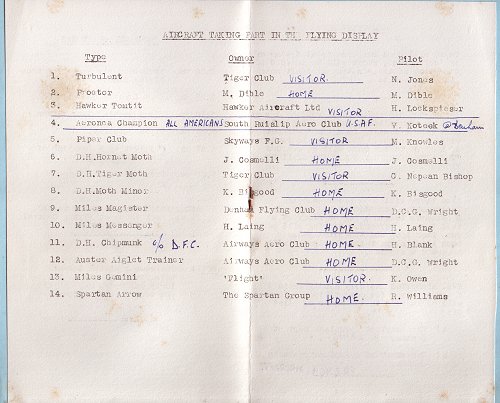 AIRCRAFT TAKING PART IN THE FLYING DISPLAY
Type Owner Pilot
1. Turbulent Tiger Club VISITOR N. Jones
2. Proctor M. Dible HOME M. Dible
3. Hawker Tomtit Hawker Aircraft Ltd VISITOR H. Lockspieser
4. Aeronca Champion ALL AMERICANS South Ruislip Aero Club U.S.A.F. V. Koteek @ Denham
5. Piper Club Skyways F.G. VISITOR M. Knowles
6. D.H.Hornet Moth J. Cosmelli HOME J. Cosmelli
7. D.H.Tiger Moth Tiger Club VISITOR C. Nepean Bishop
8. D.H.Moth Minor K. Bisgood HOME K. Bisgood
9. Miles Magister Denham Flying Club HOME D.C.G. Wright
10. Miles Messenger H. Laing HOME H. Laing
11. D.H. Chipmunk c/o D.F.C. Airways Aero Club HOME H. Blank
12. Auster Aiglet Trainer Airways Aero Club HOME D.C.G. Wright
13. Miles Gemini 'Flight' VISITOR. K. Owen
14. Spartan Arrow The Spartan Group HOME. R. Williams